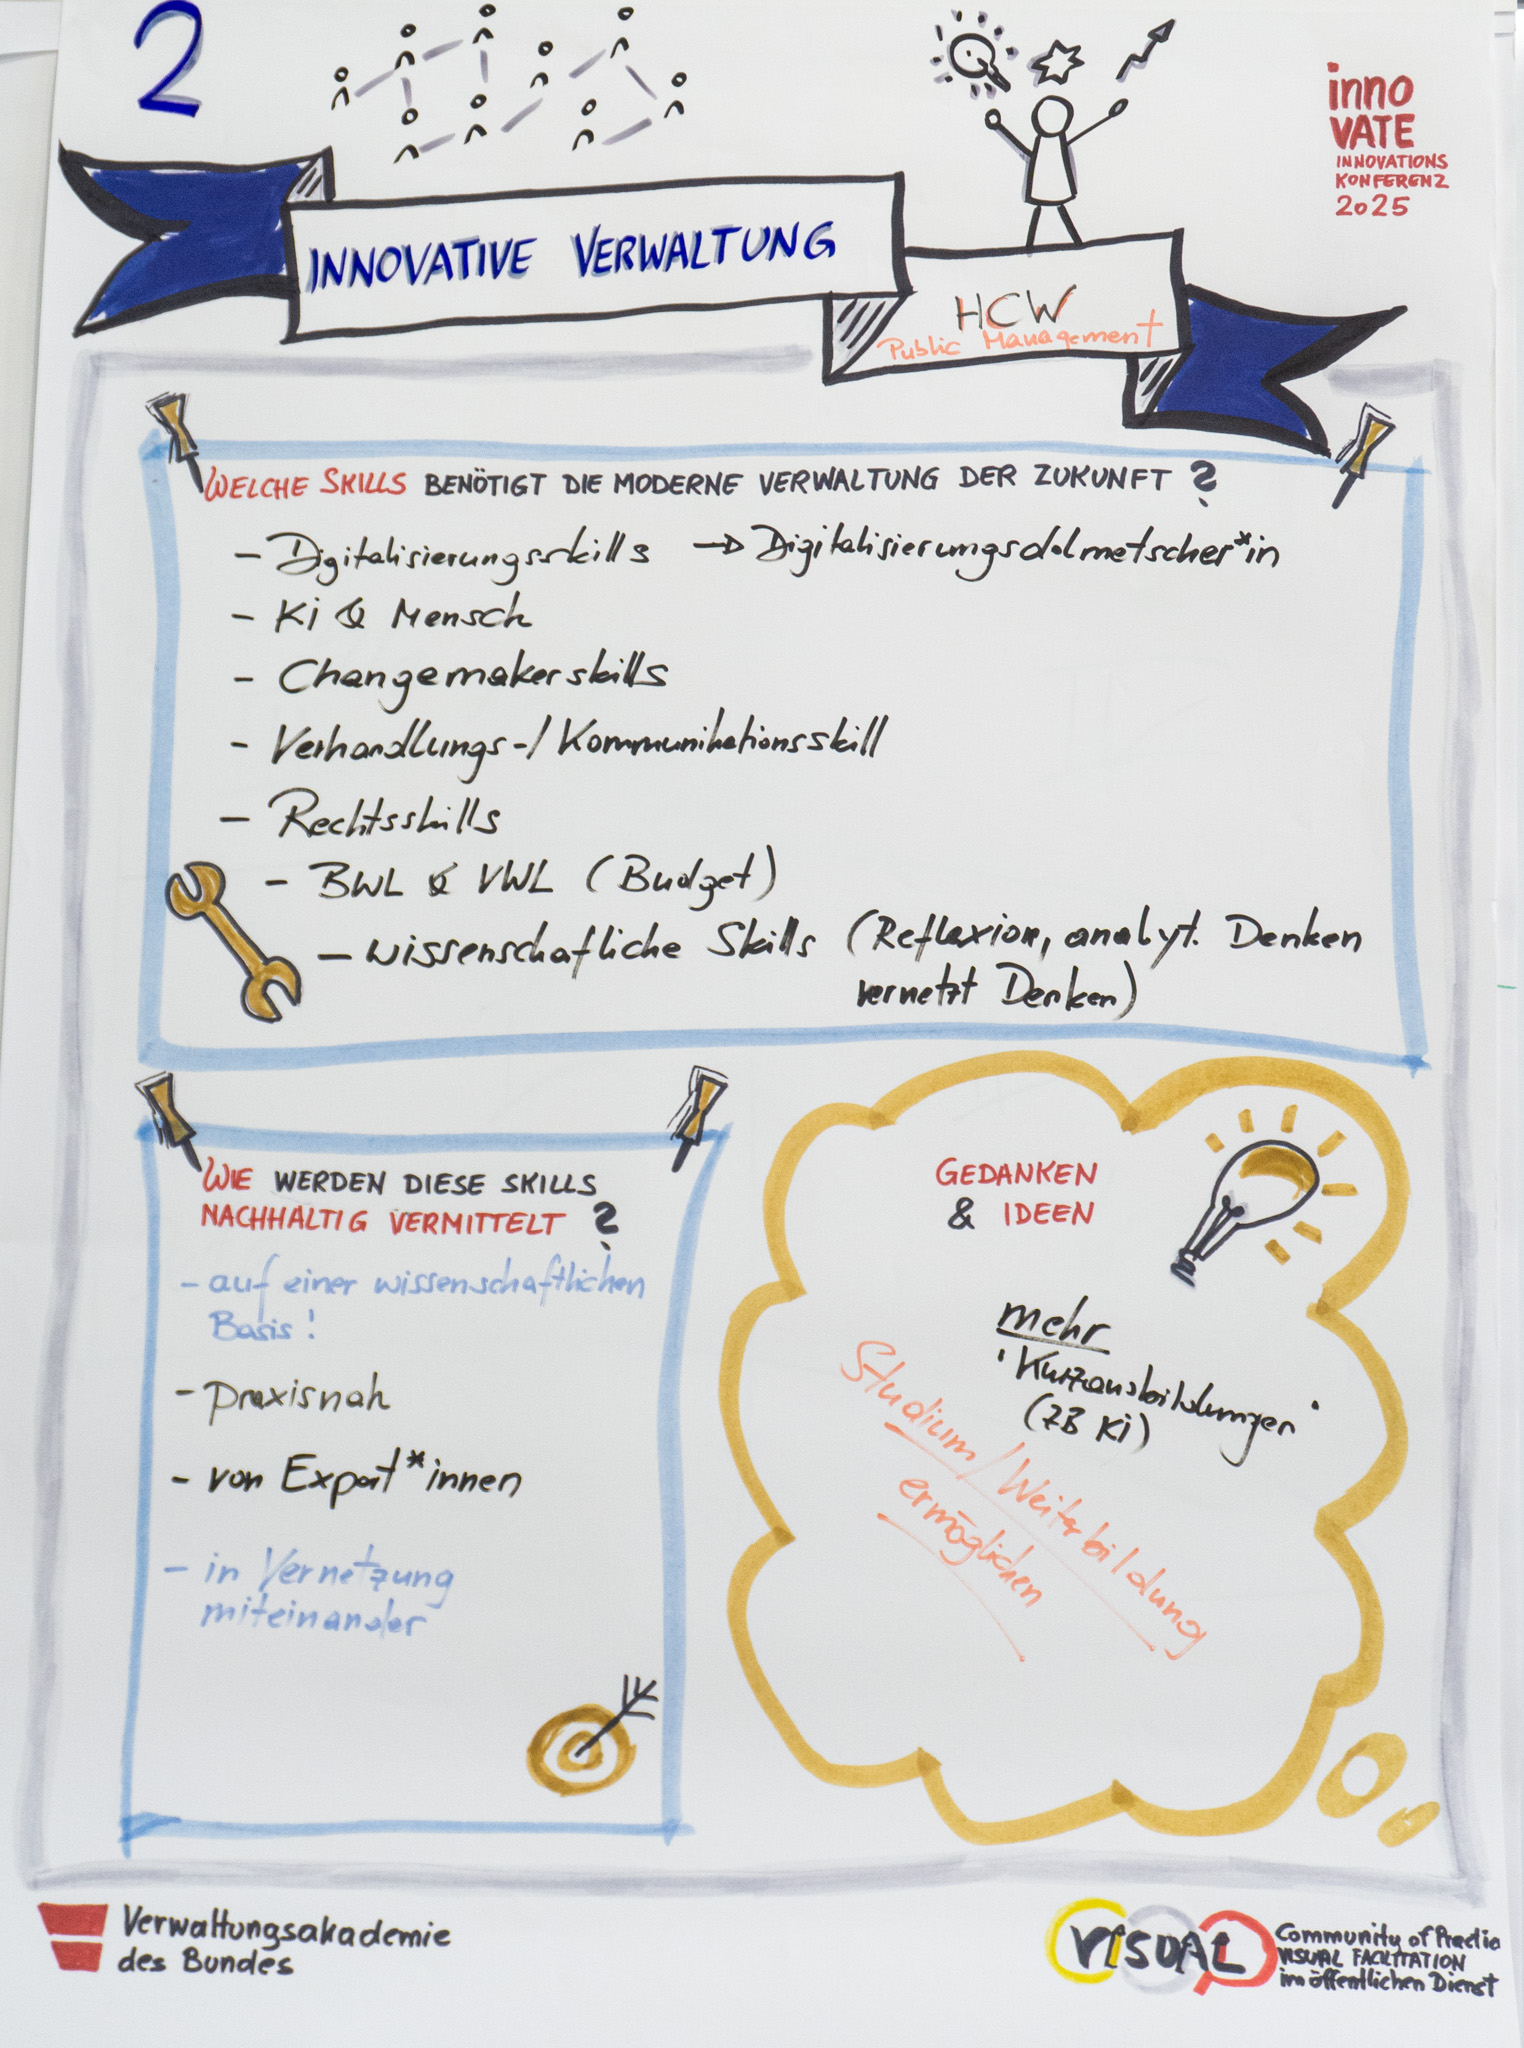 2
inno
VATE
INNOVATIONS
KONFERENZ
2025
INNOVATIVE VERWALTUNG
HCW
Public Management
WELCHE SKILLS BENÖTIGT DIE MODERNE VERWALTUNG DER ZUKUNFT?
- Digitalisierungsskills → Digitalisierungsdolmetscher*in
- Ki & Mensch
- Changemakerskills
- Verhandlungs-/Kommunikationsskill
- Rechtsskills
- BWL & VWL (Budget)
- wissenschaftliche Skills (Reflexion, analyt. Denken
vernetzt Denken)
WIE WERDEN DIESE SKILLS
NACHHALTIG VERMITTELT?
- auf einer wissenschaftlichen
Basis!
- praxisnah
- von Expert*innen
- in Vernetzung
miteinander
GEDANKEN
& IDEEN
mehr
'Kurzausbildungen'
(zB Ki)
Studium/Weiterbildung
ermöglichen
Verwaltungsakademie
des Bundes
VISUAL
Community of Practice
VISUAL FACILITATION
im öffentlichen Dienst